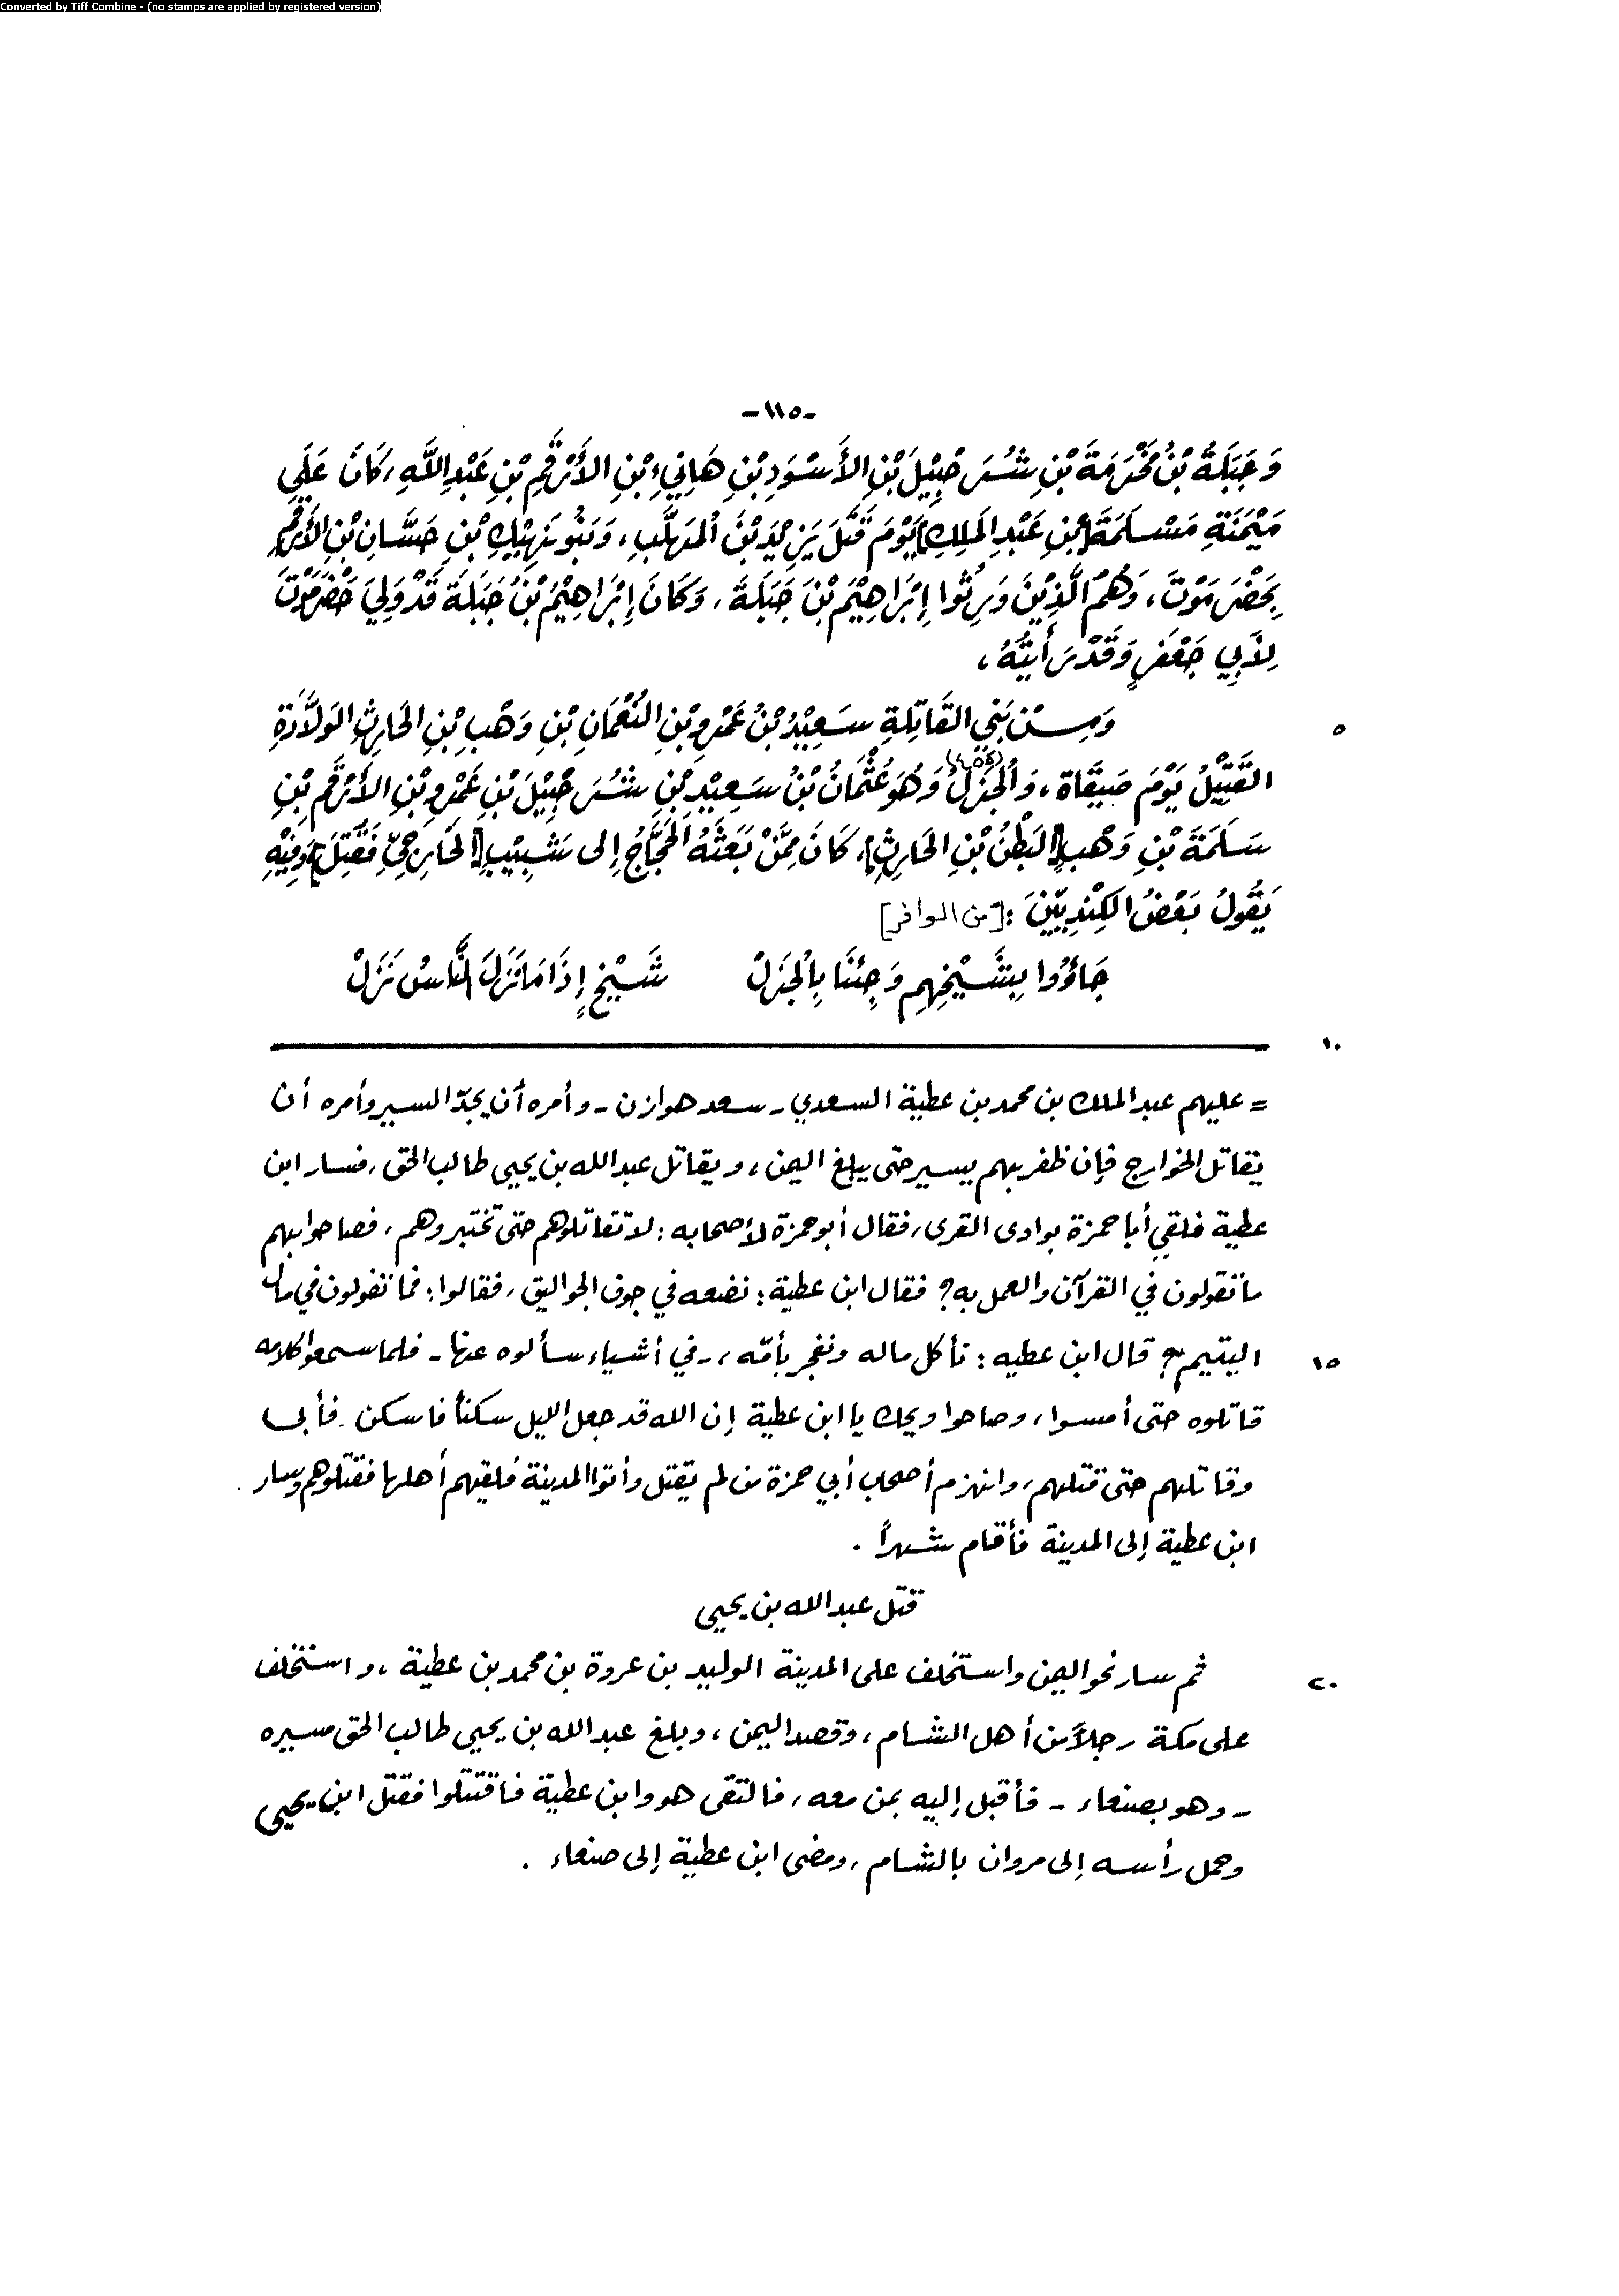 Converted by Tiff Combine - (no stamps are applied by registered version)
-١١٥-
وَجَبَلَةُ بْنُ مَخْرَمَةَ بْنِ شُرَحْبِيْلَ بْنِ الأَسْوَدِ بْنِ هَانِيْءِ بْنِ الأَرْقَمِ بْنِ عَبْدِ اللَّهِ، كَانَ عَلَى
مَيْمَنَةِ مَسْلَمَةَ [بْنِ عَبْدِ المَلِكِ] يَوْمَ قَتَلَ يَزِيْدَ بْنَ المُهَلَّبِ، وَبَنُو نَهِيْكِ بْنِ حَسَّانِ بْنِ الأَرْقَمِ
بِحَضْرَمَوْتَ، وَهُمُ الَّذِيْنَ وَرِثُوا إِبْرَاهِيْمَ بْنَ جَبَلَةَ، وَكَانَ إِبْرَاهِيْمُ بْنُ جَبَلَةَ قَدْ وَلِيَ حَضْرَمَوْتَ
لِأَبِي جَعْفَرٍ وَقَدْ رَأَيْتُهُ،
٥ وَمِنْ بَنِي القَاتِلَةِ سَعِيْدُ بْنُ عَمْرِو بْنِ النُعْمَانِ بْنِ وَهْبِ بْنِ الحَارِثِ الوَلاَّدَةِ
القَتِيْلُ يَوْمَ صَيْقَاةَ، وَالجَزْلُ وَهُوَ عُثْمَانُ بْنُ سَعِيْدِ بْنِ شُرَحْبِيْلَ بْنِ عَمْرِو بْنِ الأَرْقَمِ بْنِ
سَلَمَةَ بْنِ وَهْبٍ [البَطْنُ بْنِ الحَارِثِ]، كَانَ مِمَّنْ بَعَثَهُ الحَجَّاجُ إِلى شَبِيْبٍ [الخَارِجِيِّ فَقُتِلَ] وَفِيْهِ
يَقُولُ بَعْضُ الكِنْدِيِّيْنَ: [من الوافر]
جَاؤُوا بِشَيْخِهِم وَجِئْنَا بِالجَزَلْ شَيْخٍ إِذَا مَا نَزَلَ النَّاسُ نَزَلْ
١٠
= عليهم عبد الملك بن محمد بن عطية السعدي - سعد هوازن - وأمره أن يجدّ السير وأمره أن
يقاتل الخوارج فإن ظفر بهم يسير حتى يبلغ اليمن، ويقاتل عبد الله بن يحيى طالب الحق، فسار ابن
عطية فلقي أبا حمزة بوادى القرى، فقال أبو حمزة لأصحابه: لا تقاتلوهم حتى تختبروهم، فصاحوا بهم
ما تقولون في القرآن والعمل به؟ فقال ابن عطية: نضعه في جوف الجواليق، فقالوا: فما تقولون في مال
١٥ اليتيم؟ قال ابن عطيه: نأكل ماله ونفجر بأمّه، - في أشياء سألوه عنها - فلما سمعوا كلامه
قاتلوه حتى أمسوا، وصاحوا ويحك يا ابن عطية إن الله قد جعل الليل سكناً فاسكن. فأبى
وقاتلهم حتى قتلهم، وانهزم أصحاب أبي حمزة من لم يقتل وأتوا المدينة فلقيهم أهلها فقتلوهم وسار
ابن عطية إلى المدينة فأقام شهراً.
قتل عبد الله بن يحيى
٢٠ ثم سار نحو اليمن واستخلف على المدينة الوليد بن عروة بن محمد بن عطية، واستخلف
على مكة رجلاً من أهل الشام، وقصد اليمن، وبلغ عبد الله بن يحيى طالب الحق مسيره
- وهو بصنعاء - فأقبل إليه بمن معه، فالتقى هو وابن عطية فاقتتلوا فقتل ابن يحيى
وحمل رأسه إلى مروان بالشام، ومضى ابن عطية إلى صنعاء.